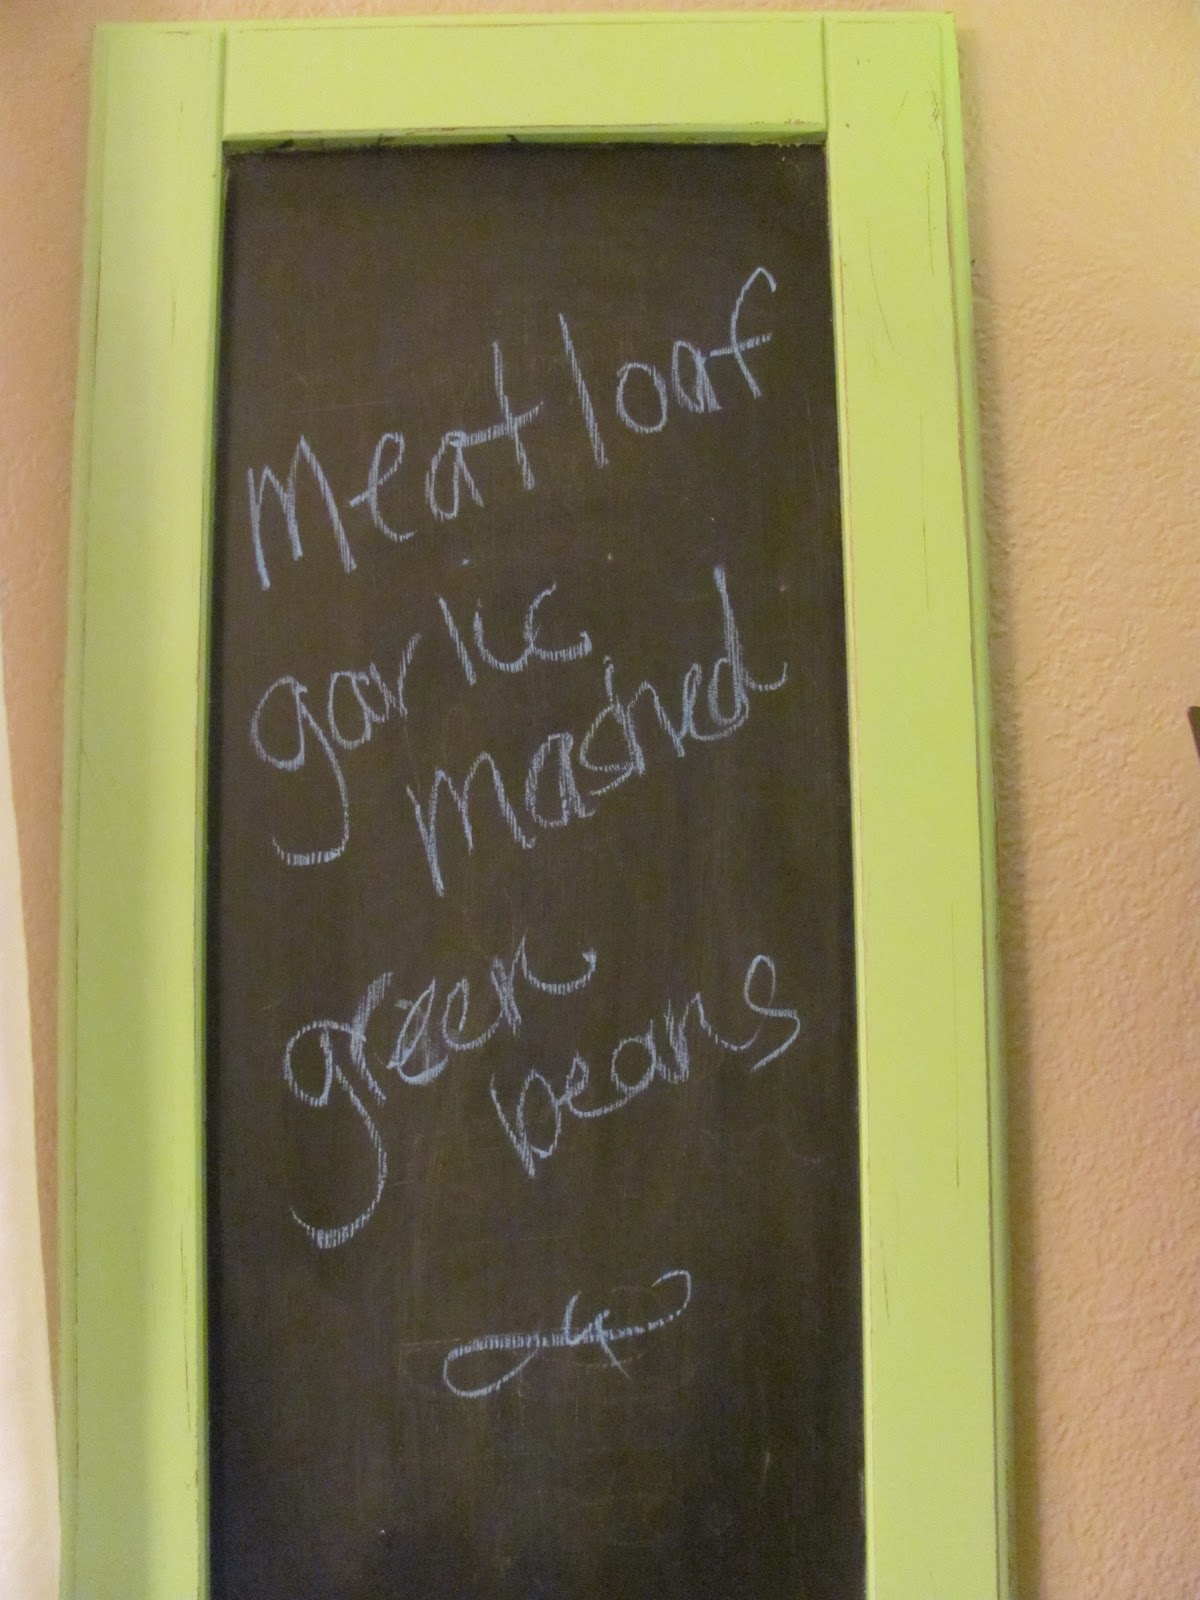 Meatloaf
garlic
mashed
green
beans